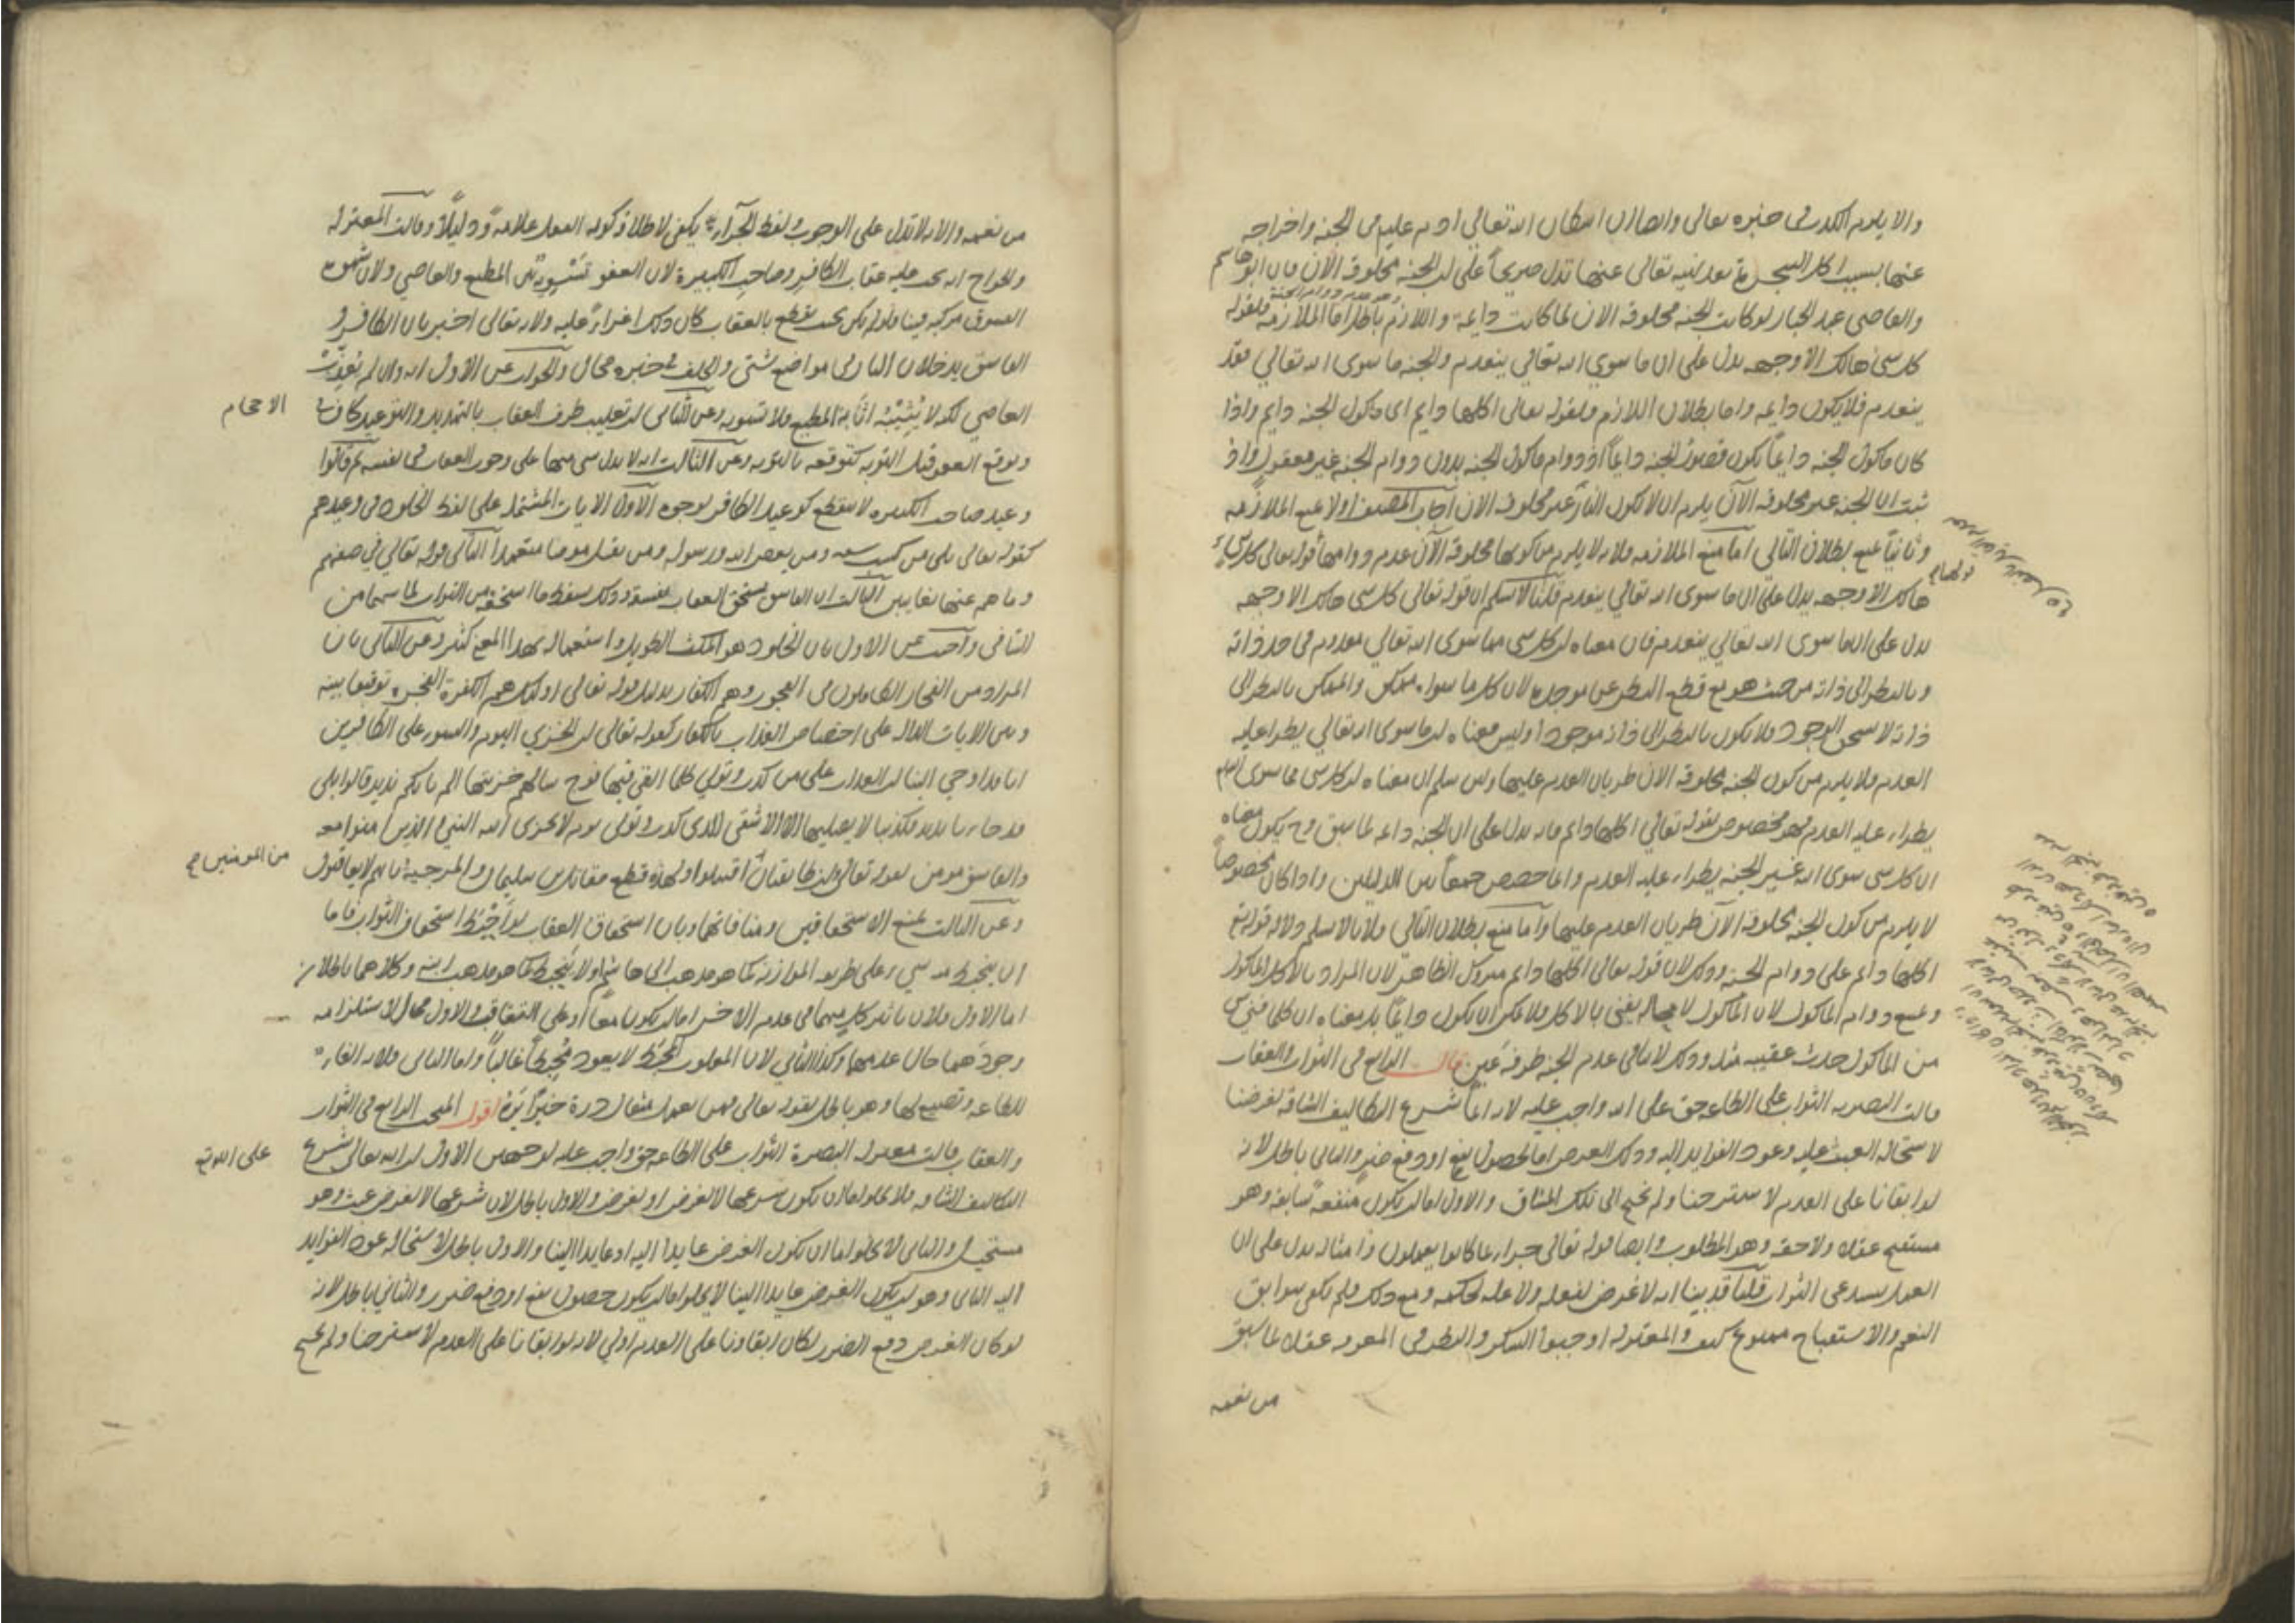 والا يلزم الكذب في خبره تعالى وايضا ان اسكان الله تعالى ادم عليه في الجنة واخراجه
عنها بسبب اكل الشجرة بعد نهيه تعالى عنها تدل صريحا على ان الجنة مخلوقة الآن قال ابو هاشم
والقاضي عبد الجبار لو كانت الجنة مخلوقة الان لما كانت دايمة واللازم باطل اما الملازمة فلقوله
كل شئ هالك الا وجهه يدل على ان ما سوى الله تعالى ينعدم والجنة ما سوى الله تعالى فقد
ينعدم فلا يكون دايمة واما بطلان اللازم فلقوله تعالى اكلها دايم اى ماكول الجنة دايم واذا
كان ماكول الجنة دايماً يكون الجنة دايماً اذ دوام ماكول الجنة بدون دوام الجنة غير معقول واذ
ثبت ان الجنة غير مخلوقة الآن يلزم ان لا يكون النار غير مخلوقة الان اجاب المصنف اولا بمنع الملازمة
وثانيا بمنع بطلان التالي اما منع الملازمة فلانه لا يلزم من كونها مخلوقة الآن عدم دوامها قوله تعالى كل شئ
هالك الا وجهه يدل على ان ما سوى الله تعالى ينعدم قلنا لا نسلم ان قوله تعالى كل شئ هالك الا وجهه
يدل على ان ما سوى الله تعالى ينعدم فان معناه ان كل شئ مما سوى الله تعالى معدوم في حد ذاته
وبالنظر الى ذاته من حيث هو مع قطع النظر عن موجده لان كل ما سواه ممكن والممكن بالنظر الى
ذاته لا يستحق الوجود فلا يكون بالنظر الى ذاته موجودا وليس معناه ان ما سوى الله تعالى يطرا عليه
العدم فلا يلزم من كون الجنة مخلوقة الان طريان العدم عليها ولئن سلم ان معناه ان كل شئ مما سوى الله
يطراء عليه العدم فهو مخصوص بقوله تعالى اكلها دايم فانه يدل على ان الجنة دايمة لما سبق وح يكون معناه
ان كل شئ سوى الله غير الجنة يطراء عليه العدم وانما خصص جمعا بين الدليلين واذا كان مخصوصا
لا يلزم من كون الجنة مخلوقة الآن طريان العدم عليها واما منع بطلان التالي فلانا لا نسلم دلالة قوله تع
اكلها دائم على دوام الجنة وذلك لان قوله تعالى اكلها دايم متروك الظاهر لان المراد بالاكل الماكول
ويمتنع دوام الماكول لان الماكول لا محالة يفنى بالاكل فلا يمكن ان يكون دايما بل معناه ان كلما فني شئ
من الماكول حدث عقيبه مثله وذلك لا ينافي عدم الجنة طرفة عين قال الرابع في الثواب والعقاب
قالت البصرية الثواب على الطاعة حق على الله واجب عليه لانه انما شرع التكاليف الشاقة لغرضنا
لاستحالة العبث عليه وعود الفوايد اليه وذلك الغرض اما حصول نفع او دفع ضر والثاني باطل لانه
لو ابقانا على العدم لاسترحنا ولم نحتج الى تلك المشاق والاول اما ان يكون منفعة سابقة وهو
مستقبح عقلا ولاحقة وهو المطلوب وايضا قوله تعالى جزاء بما كانوا يعملون وامثاله يدل على ان
العمل يستدعي الثواب قلنا قد بينا انه لا غرض لفعله ولا علة لحكمه ومع ذلك فلم يكفي سوابق
النعم والاستقباح ممنوع كيف والمعتزلة اوجبوا الشكر والنظر في المعرفة عقلا لما سبق
من نعمه
من نعمه والاية لا تدل على الوجوب ولفظ الجزاء يكفي لاطلاقه كون العمل علامة ودليلا وقالت المعتزلة
والخوارج انه يجب عليه عقاب الكافر وصاحب الكبيرة لان العفو تسوية بين المطيع والعاصي ولان شهوة
الفسوق مركبة فينا فلو لم يكن بحيث يقطع بالعقاب كان ذلك اغراء عليه ولانه تعالى اخبر بان الكافر و
الفاسق يدخلان النار في مواضع شتى والخلف في خبره محال والجواب عن الاول انه وان لم يعذب
العاصي لكنه لا يثيبه اثابة المطيع فلا تسوية وعن الثاني ان تغليب طرف العقاب بالتهديد والتوعيد كاف في
الاحجام
وتوقع العفو قبل التوبة كتوقعه بالتوبة وعن الثالث انه لا يدل شئ منها على وجوب العقاب في نفسه ثم قالوا
وعيد صاحب الكبيرة لا ينقطع كوعيد الكافر لوجوه الاول الايات المشتملة على لفظ الخلود في وعيدهم
كقوله تعالى بلى من كسب سيئة ومن يعص الله ورسوله ومن يقتل مومنا متعمدا الثاني قوله تعالى في صفتهم
وما هم عنها بغايبين الثالث ان الفاسق يستحق العقاب بفسقه وذلك يسقط ما استحقه من الثواب لما بينهما من
التنافي واجيب عن الاول بان الخلود هو المكث الطويل واستعماله بهذا المعنى كثير وعن الثاني بان
المراد من الفجار الكاملون في الفجور وهم الكفار بدليل قوله تعالى اولئك هم الكفرة الفجرة توفيقا بينه
وبين الايات الدالة على اختصاص العذاب بالكفار كقوله تعالى ان الخزي اليوم والسوء على الكافرين
انا قد اوحي الينا ان العذاب على من كذب وتولى كلما القي فيها فوج سالهم خزنتها الم ياتكم نذير قالوا بلى
قد جاءنا نذير فكذبنا لا يصليها الا الاشقى الذي كذب وتولى يوم لا يخزى الله النبي والذين امنوا معه
والفاسق مومن لقوله تعالى وان طايفتان من المومنين اقتتلوا ولهذا قطع مقاتل بن سليمان والمرجية بانهم لا يعاقبون
وعن الثالث بمنع الاستحقاقين ومنافاتهما وبان استحقاق العقاب لو احبط استحقاق الثواب فاما
ان ينحبط منه شئ على طريق الموازنة كما هو مذهب ابي هاشم اولا ينحبط كما هو مذهب ابيه وكلاهما باطلان
اما الاول فلان تاثير كل منهما في عدم الاخر اما ان يكون معا او على التعاقب والاول محال لاستلزامه
وجودهما حال عدمهما وكذا الثاني لان المغلوب المحبط لا يعود محبطا غالبا واما الثاني فلانه الغاء
للطاعة وتضييع لها وهو باطل بقوله تعالى فمن يعمل مثقال ذرة خيرا يره اقول المبحث الرابع في الثواب
والعقاب قالت معتزلة البصرة الثواب على الطاعة حق واجب عليه لوجهين الاول ان الله تعالى شرع
على الله تع
التكاليف الشاقة فلا يخلو اما ان يكون شرعها لا لغرض او لغرض والاول باطل لان شرعها لا لغرض عبث وهو
مستحيل والثاني لا يخلوا اما ان يكون الغرض عايدا اليه او عايدا الينا والاول باطل لاستحالة عود الفوايد
اليه الثاني وهو ان يكون الغرض عايدا الينا لا يخلو اما ان يكون حصول نفع او دفع ضرر والثاني باطل لانه
لو كان الغرض دفع الضرر لكان ابقاونا على العدم اولى لانه لو ابقانا على العدم لاسترحنا ولم نحتج